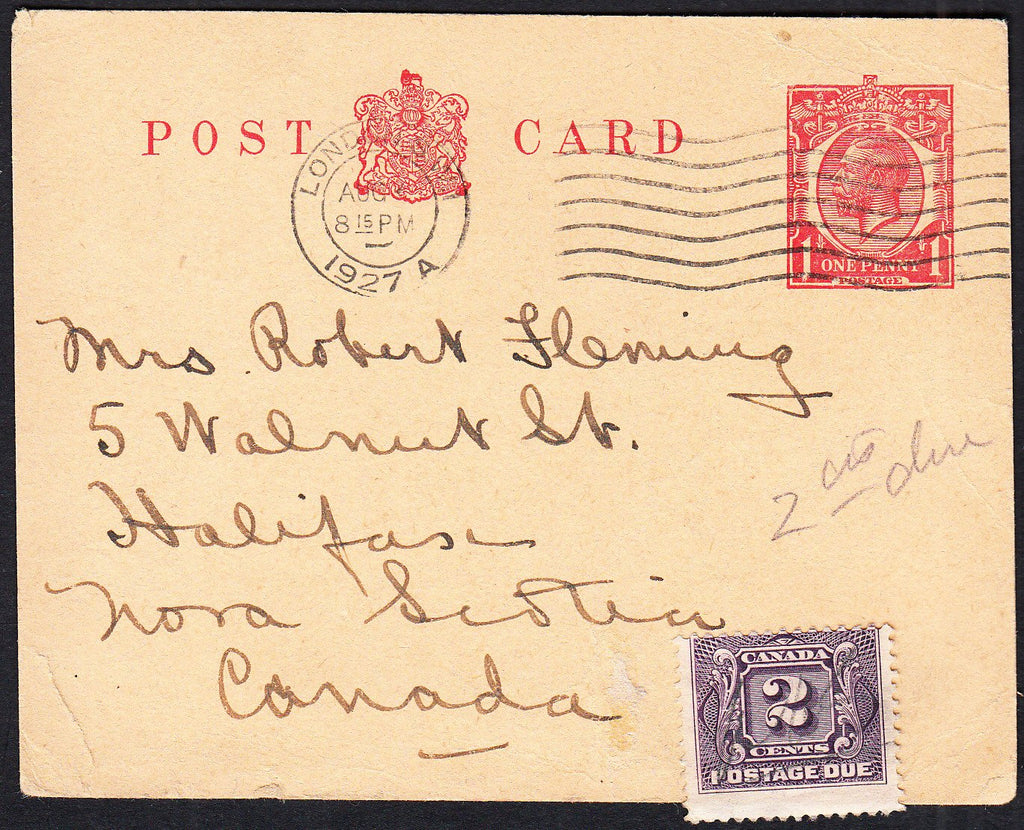 POST CARD
LONDON
AUG
8 15 PM
1927 A
1 ONE PENNY 1
POSTAGE
Mrs Robert Fleming
5 Walnut St.
Halifax
Nova Scotia
Canada
2 cts due
CANADA
2
CENTS
POSTAGE DUE